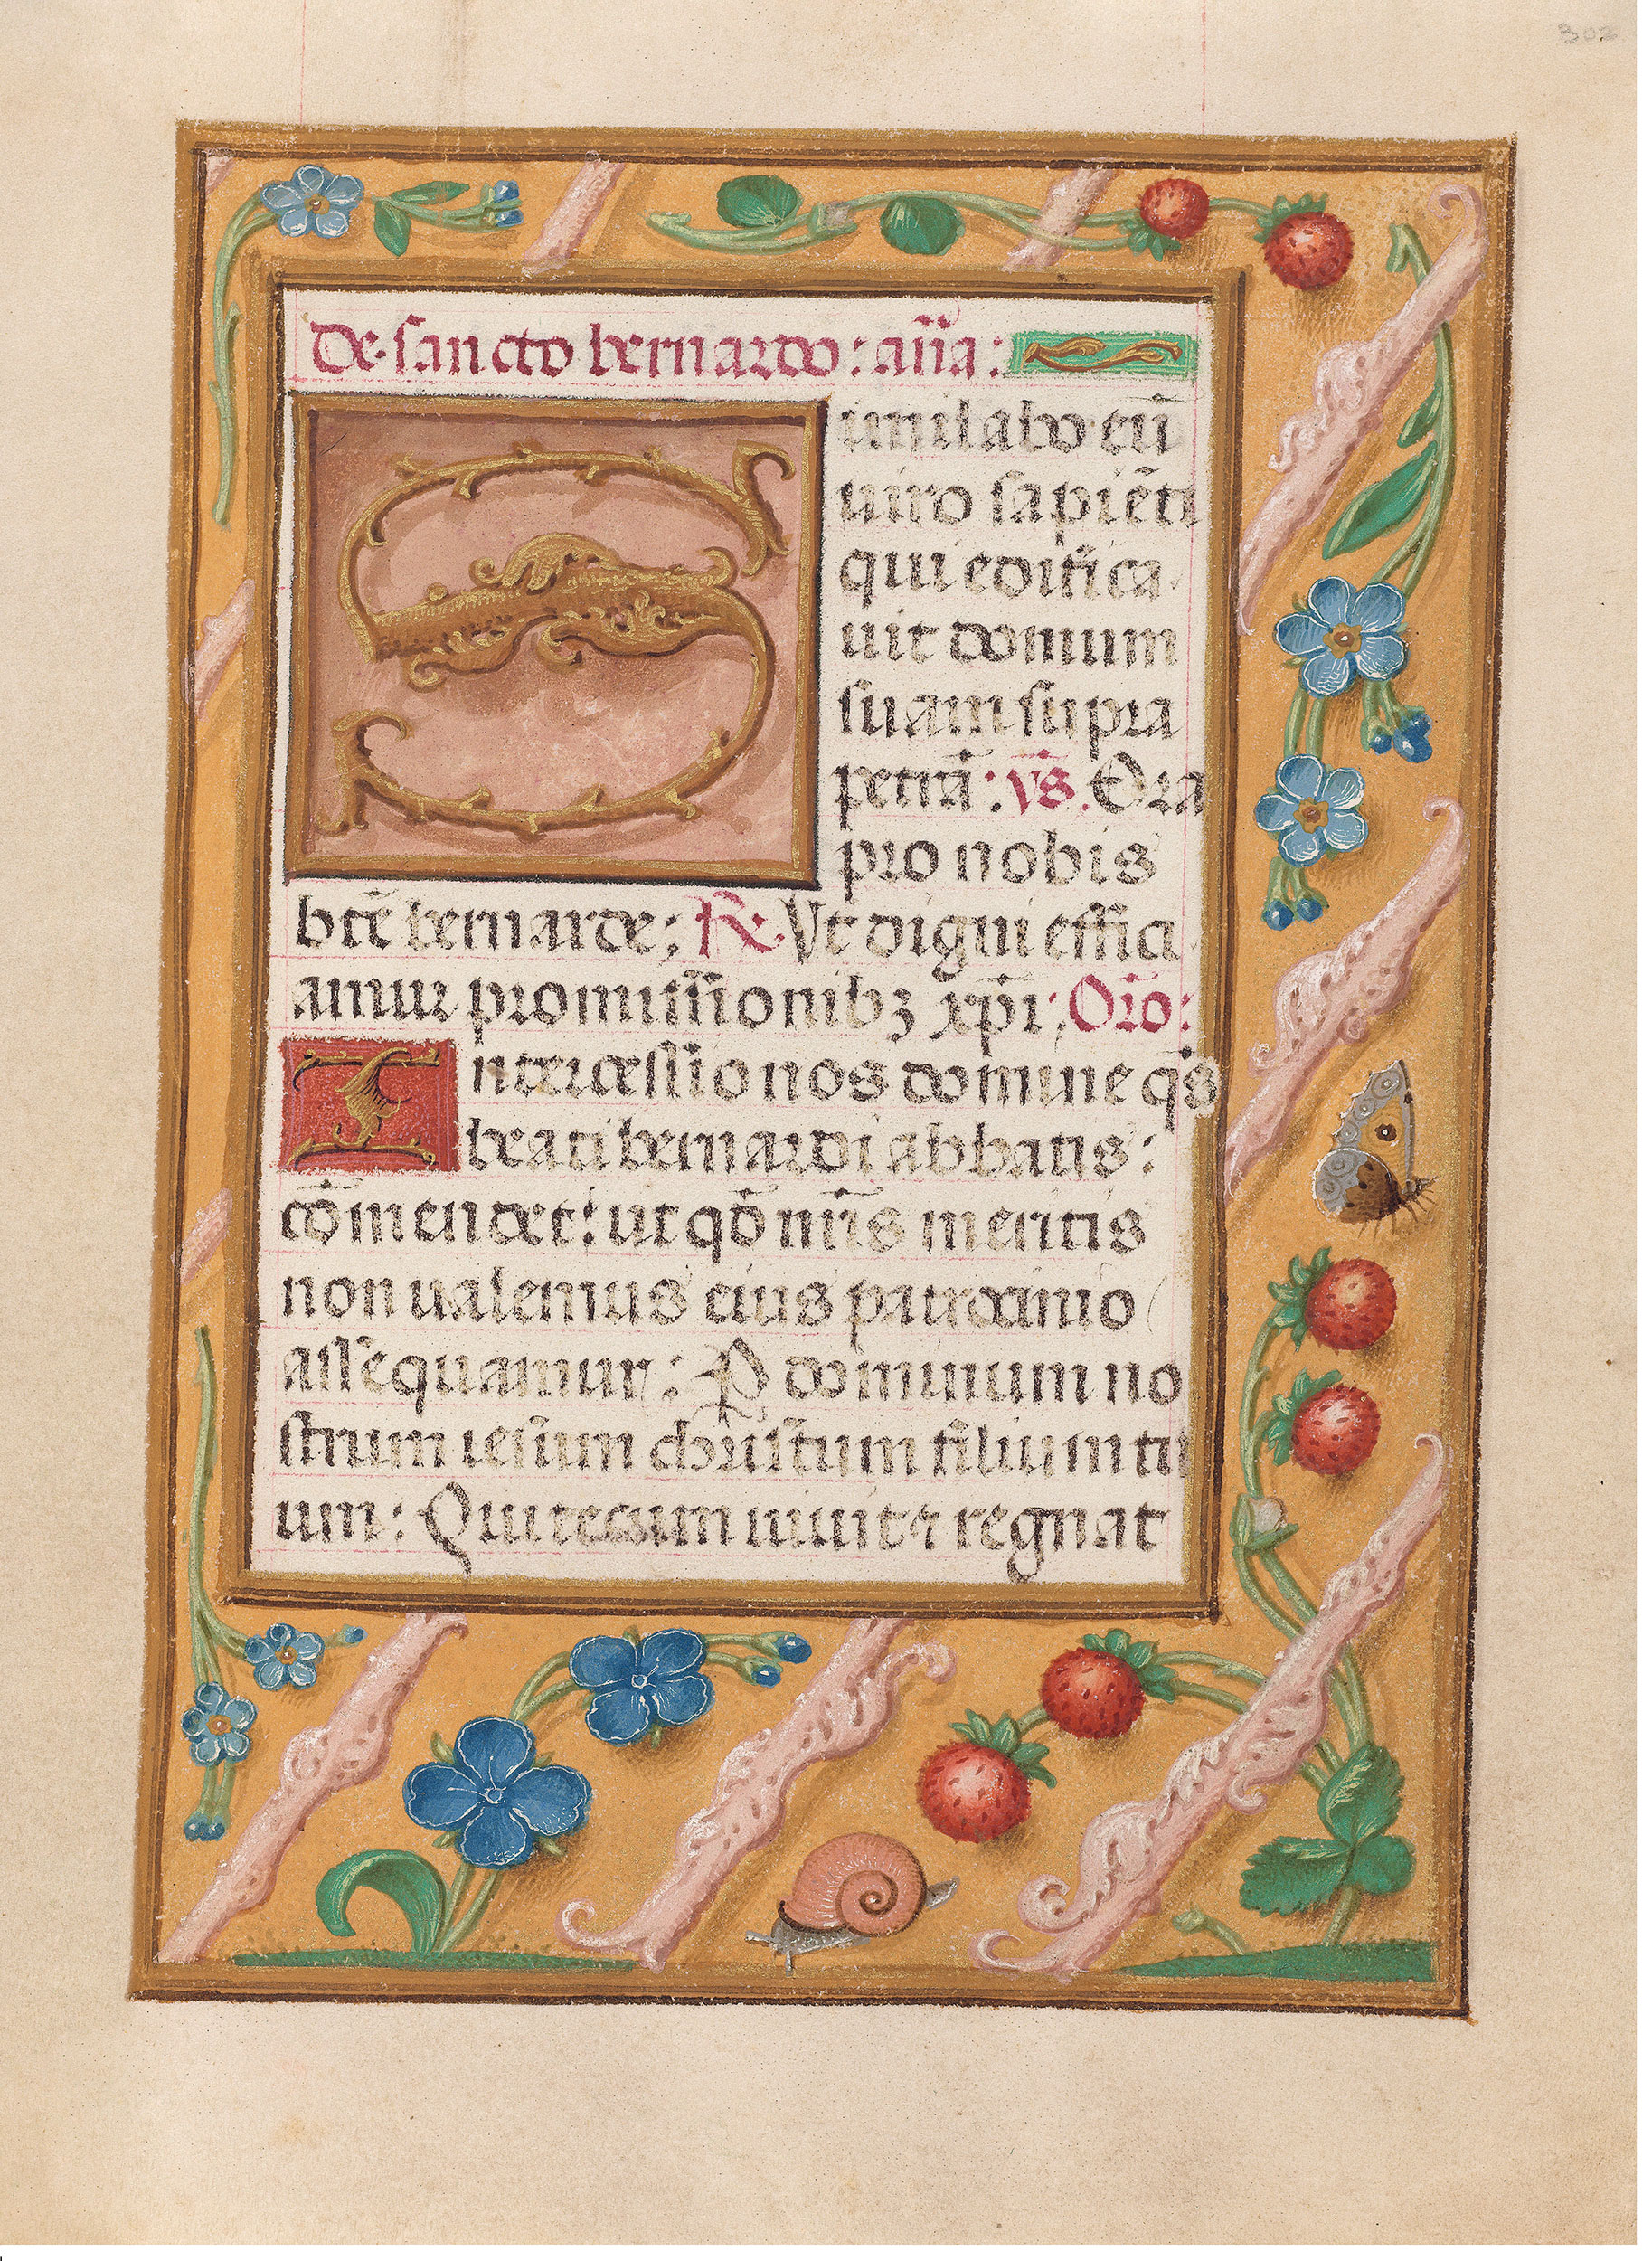 302
De sancto bernardo: an̄a:
Similabo eū
uiro sapiēti
qui edifica
uit domum
suam supra
petrā: v̄s. Ora
pro nobis
btē bernarde; R. Vt digni effici
amur promissionibꝫ xp̄i; Or̄o:
Intercessio nos domine qs̄
beati bernardi abbatis:
cōmendet: ut qd̄ nr̄is meritis
non ualemus eius patrocinio
assequamur: P dominum no
strum iesum christum filium tu
um: Qui tecum uiuit ⁊ regnat